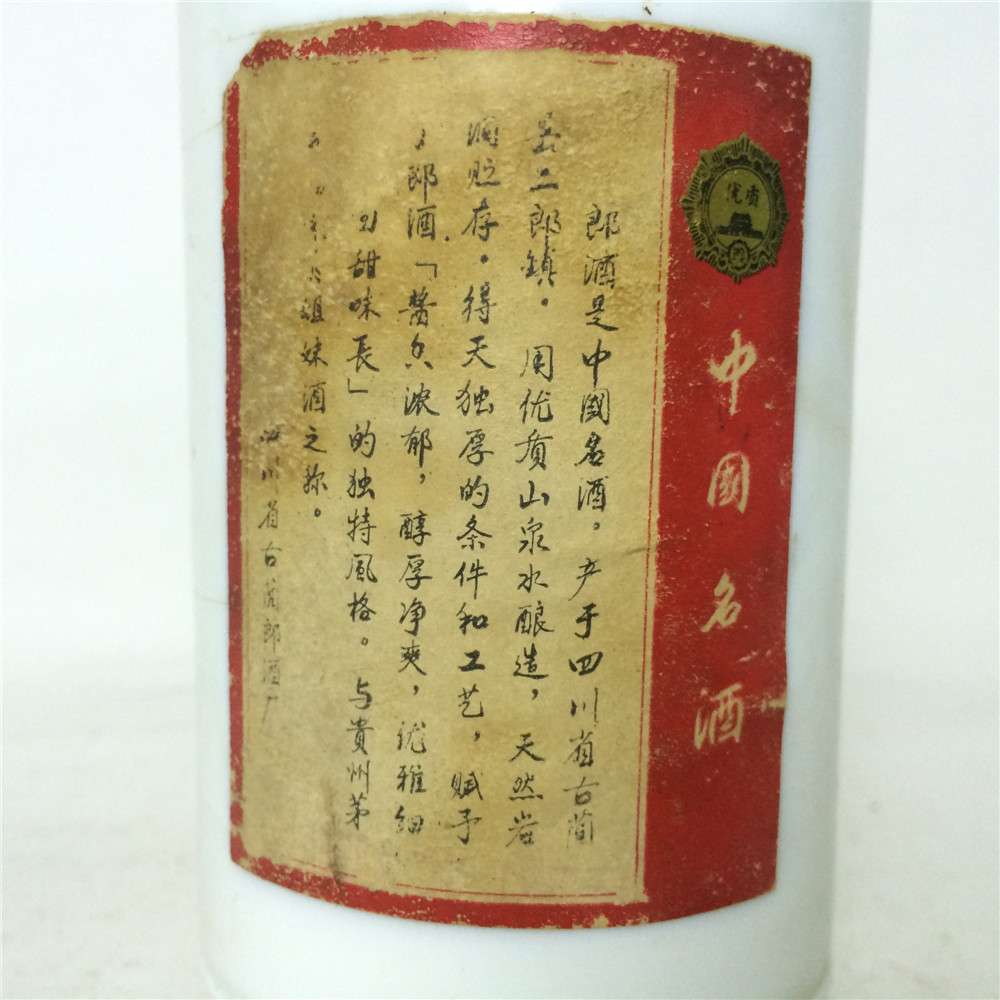 优质
中國名酒
郎酒是中國名酒。产于四川省古蔺
县二郎镇。用优质山泉水酿造,天然岩
洞贮存。得天独厚的条件和工艺,赋予
郎酒「醬香浓郁,醇厚净爽,优雅细
甜味長」的独特風格。与貴州茅
姐妹酒之称。
四川省古蔺郎酒厂